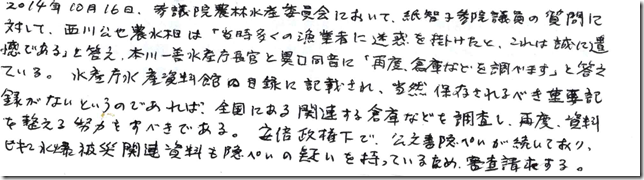 2014年10月16日、参議院農林水産委員会において、紙智子参院議員の質問に
対して、西川公也農水相は「当時多くの漁業者に迷惑を掛けたと、これは誠に遺
憾である」と答え、本川一善水産庁長官と異口同音に「再度、倉庫などを調べます」と答え
ている。水産庁水産資料館の目録に記載され、当然保存されるべき重要記
録がないというのであれば、全国にある関連する倉庫などを調査し、再度、資料
を整える努力をすべきである。安倍政権下で、公文書隠ぺいが続いており、
ビキニ水爆被災関連資料も隠ぺいの疑いを持っているため、審査請求する。